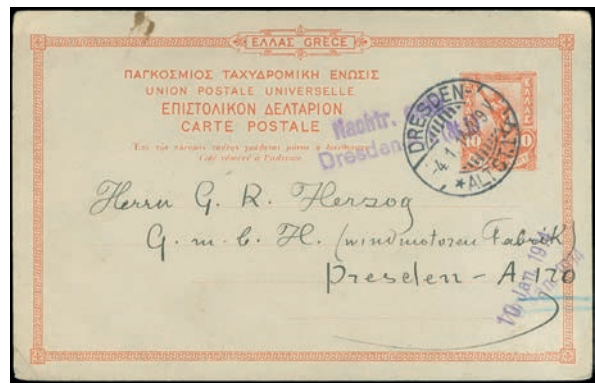 ΕΛΛΑΣ GRECE
ΠΑΓΚΟΣΜΙΟΣ ΤΑΧΥΔΡΟΜΙΚΗ ΕΝΩΣΙΣ
UNION POSTALE UNIVERSELLE
ΕΠΙΣΤΟΛΙΚΟΝ ΔΕΛΤΑΡΙΟΝ
CARTE POSTALE
Côté réservé à l'adresse
ΕΛΛΑΣ
10
DRESDEN-
ALTST.
Nachtr.
Dresden
Herrn G. R. Herzog
G. m. b. H. (windmotoren Fabrik)
Dresden - A. 120
10. Jan. 1914